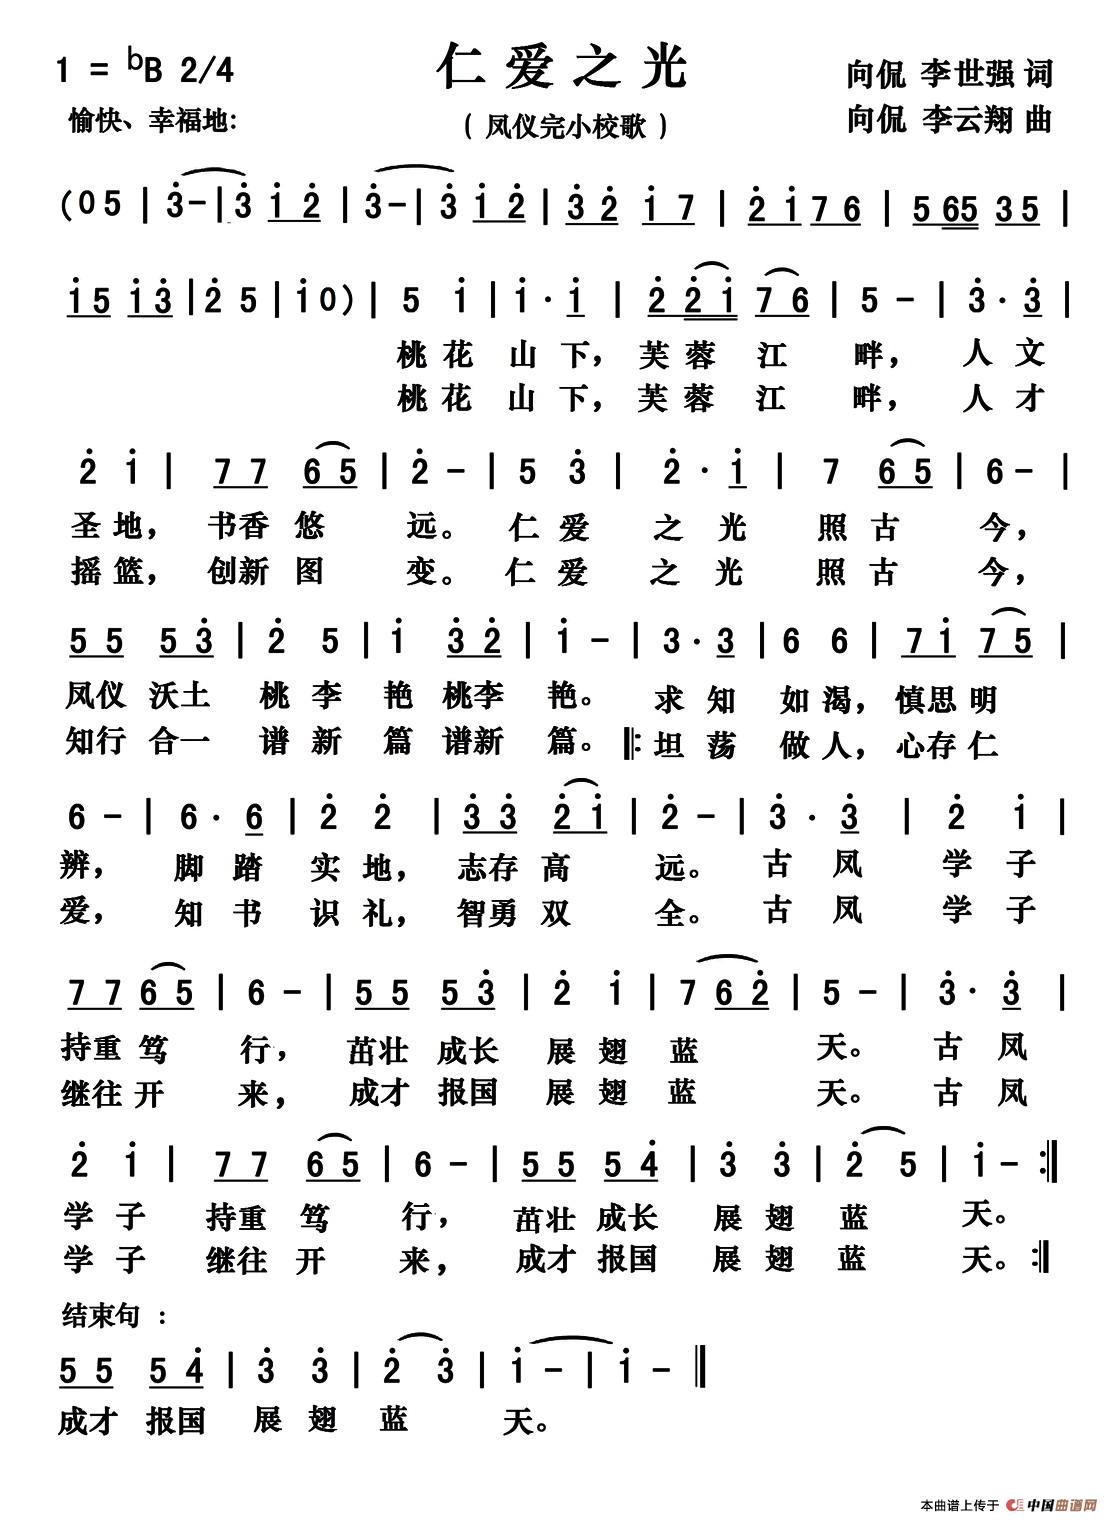 1 = ♭B 2/4
仁爱之光
向侃 李世强 词
愉快、幸福地:
（凤仪完小校歌）
向侃 李云翔 曲
(0 5 | 3̇ - | 3̇ 1̇ 2̇ | 3̇ - | 3̇ 1̇ 2̇ | 3̇ 2̇ 1̇ 7 | 2̇ 1̇ 7 6 | 5 65 3 5 |
1̇ 5 1̇ 3̇ | 2̇ 5 | 1̇ 0) | 5 1̇ | 1̇ · 1̇ | 2̇ 2̇ 1̇ 7 6 | 5 - | 3̇ · 3̇ |
桃花 山 下， 芙蓉 江 畔， 人 文
桃花 山 下， 芙蓉 江 畔， 人 才
2̇ 1̇ | 7 7 6 5 | 2̇ - | 5 3̇ | 2̇ · 1̇ | 7 6 5 | 6 - |
圣地， 书香 悠 远。 仁爱 之 光 照古 今，
摇篮， 创新 图 变。 仁爱 之 光 照古 今，
5 5 5 3̇ | 2̇ 5 | 1̇ 3̇ 2̇ | 1̇ - | 3 · 3 | 6 6 | 7 1̇ 7 5 |
凤仪 沃土 桃李 艳 桃李 艳。 求知 如渴， 慎思明
知行 合一 谱新 篇 谱新 篇。 ‖: 坦荡 做人， 心存仁
6 - | 6 · 6 | 2̇ 2̇ | 3̇ 3̇ 2̇ 1̇ | 2̇ - | 3̇ · 3̇ | 2̇ 1̇ |
辨， 脚踏 实地， 志存高 远。 古凤 学子
爱， 知书 识礼， 智勇双 全。 古凤 学子
7 7 6 5 | 6 - | 5 5 5 3̇ | 2̇ 1̇ | 7 6 2̇ | 5 - | 3̇ · 3̇ |
持重 笃 行， 茁壮 成长 展翅 蓝 天。 古凤
继往 开 来， 成才 报国 展翅 蓝 天。 古凤
2̇ 1̇ | 7 7 6 5 | 6 - | 5 5 5 4̇ | 3̇ 3̇ | 2̇ 5 | 1̇ - :‖
学子 持重 笃 行， 茁壮 成长 展翅 蓝 天。
学子 继往 开 来， 成才 报国 展翅 蓝 天。:‖
结束句 :
5 5 5 4̇ | 3̇ 3̇ | 2̇ 3̇ | 1̇ - | 1̇ - ‖
成才 报国 展翅 蓝 天。
本曲谱上传于 中国曲谱网